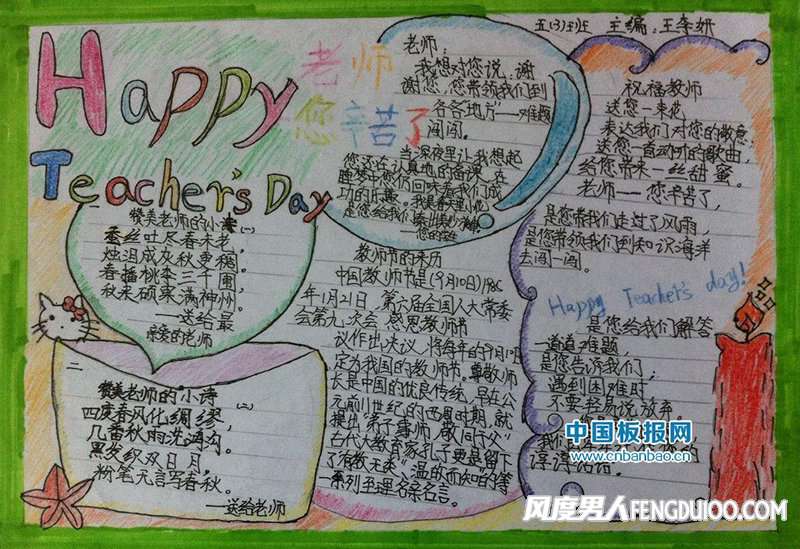 Happy
Teacher's Day
老师
您辛苦了
五(3)班 主编:王李妍
老师:
我想对您说:谢
谢您,您带领我们到
各各地方——难题
闯闯。
当深夜里让我想起
您还在认真地备课,在
睡梦中您仍回味着我们成
功的乐趣。
是您给我们
赞美老师的小诗(一)
蚕丝吐尽春未老,
烛泪成灰秋更稠。
春播桃李三千圃,
秋来硕果满神州。
——送给最
亲爱的老师
二
赞美老师的小诗(二)
四度春风化绸缪,
几番秋雨洗鸿沟。
黑发积双日月,
粉笔无言写春秋。
——送给老师
教师节的来历
中国教师节是(9月10日)1985
年1月21日,第六届全国人大常委
会第九次会 您思教师节
议作出决议,将每年的9月10日
定为我国的教师节。尊敬师
长是中国的优良传统,早在公
元前11世纪的西周时期,就
提出"弟子事师,敬同于父"
古代大教育家孔子更是留下
了"有教无类""温故而知"的等
一系列至理名条名言。
祝福教师
送您一束花
表达我们对您的敬意;
送您一首动听的歌曲,
给您带来一丝甜蜜。
老师——您辛苦了,
是您带我们走过了风雨,
是您带领我们到知识海洋
去闯一闯。
Happy Teacher's day!
是您给我们解答
一道道难题,
是您告诉我们,
遇到困难时
不要轻易说放弃。
我们
谆谆话语。
中国板报网
www.cnbanbao.cn
风度男人FENGDU100.COM